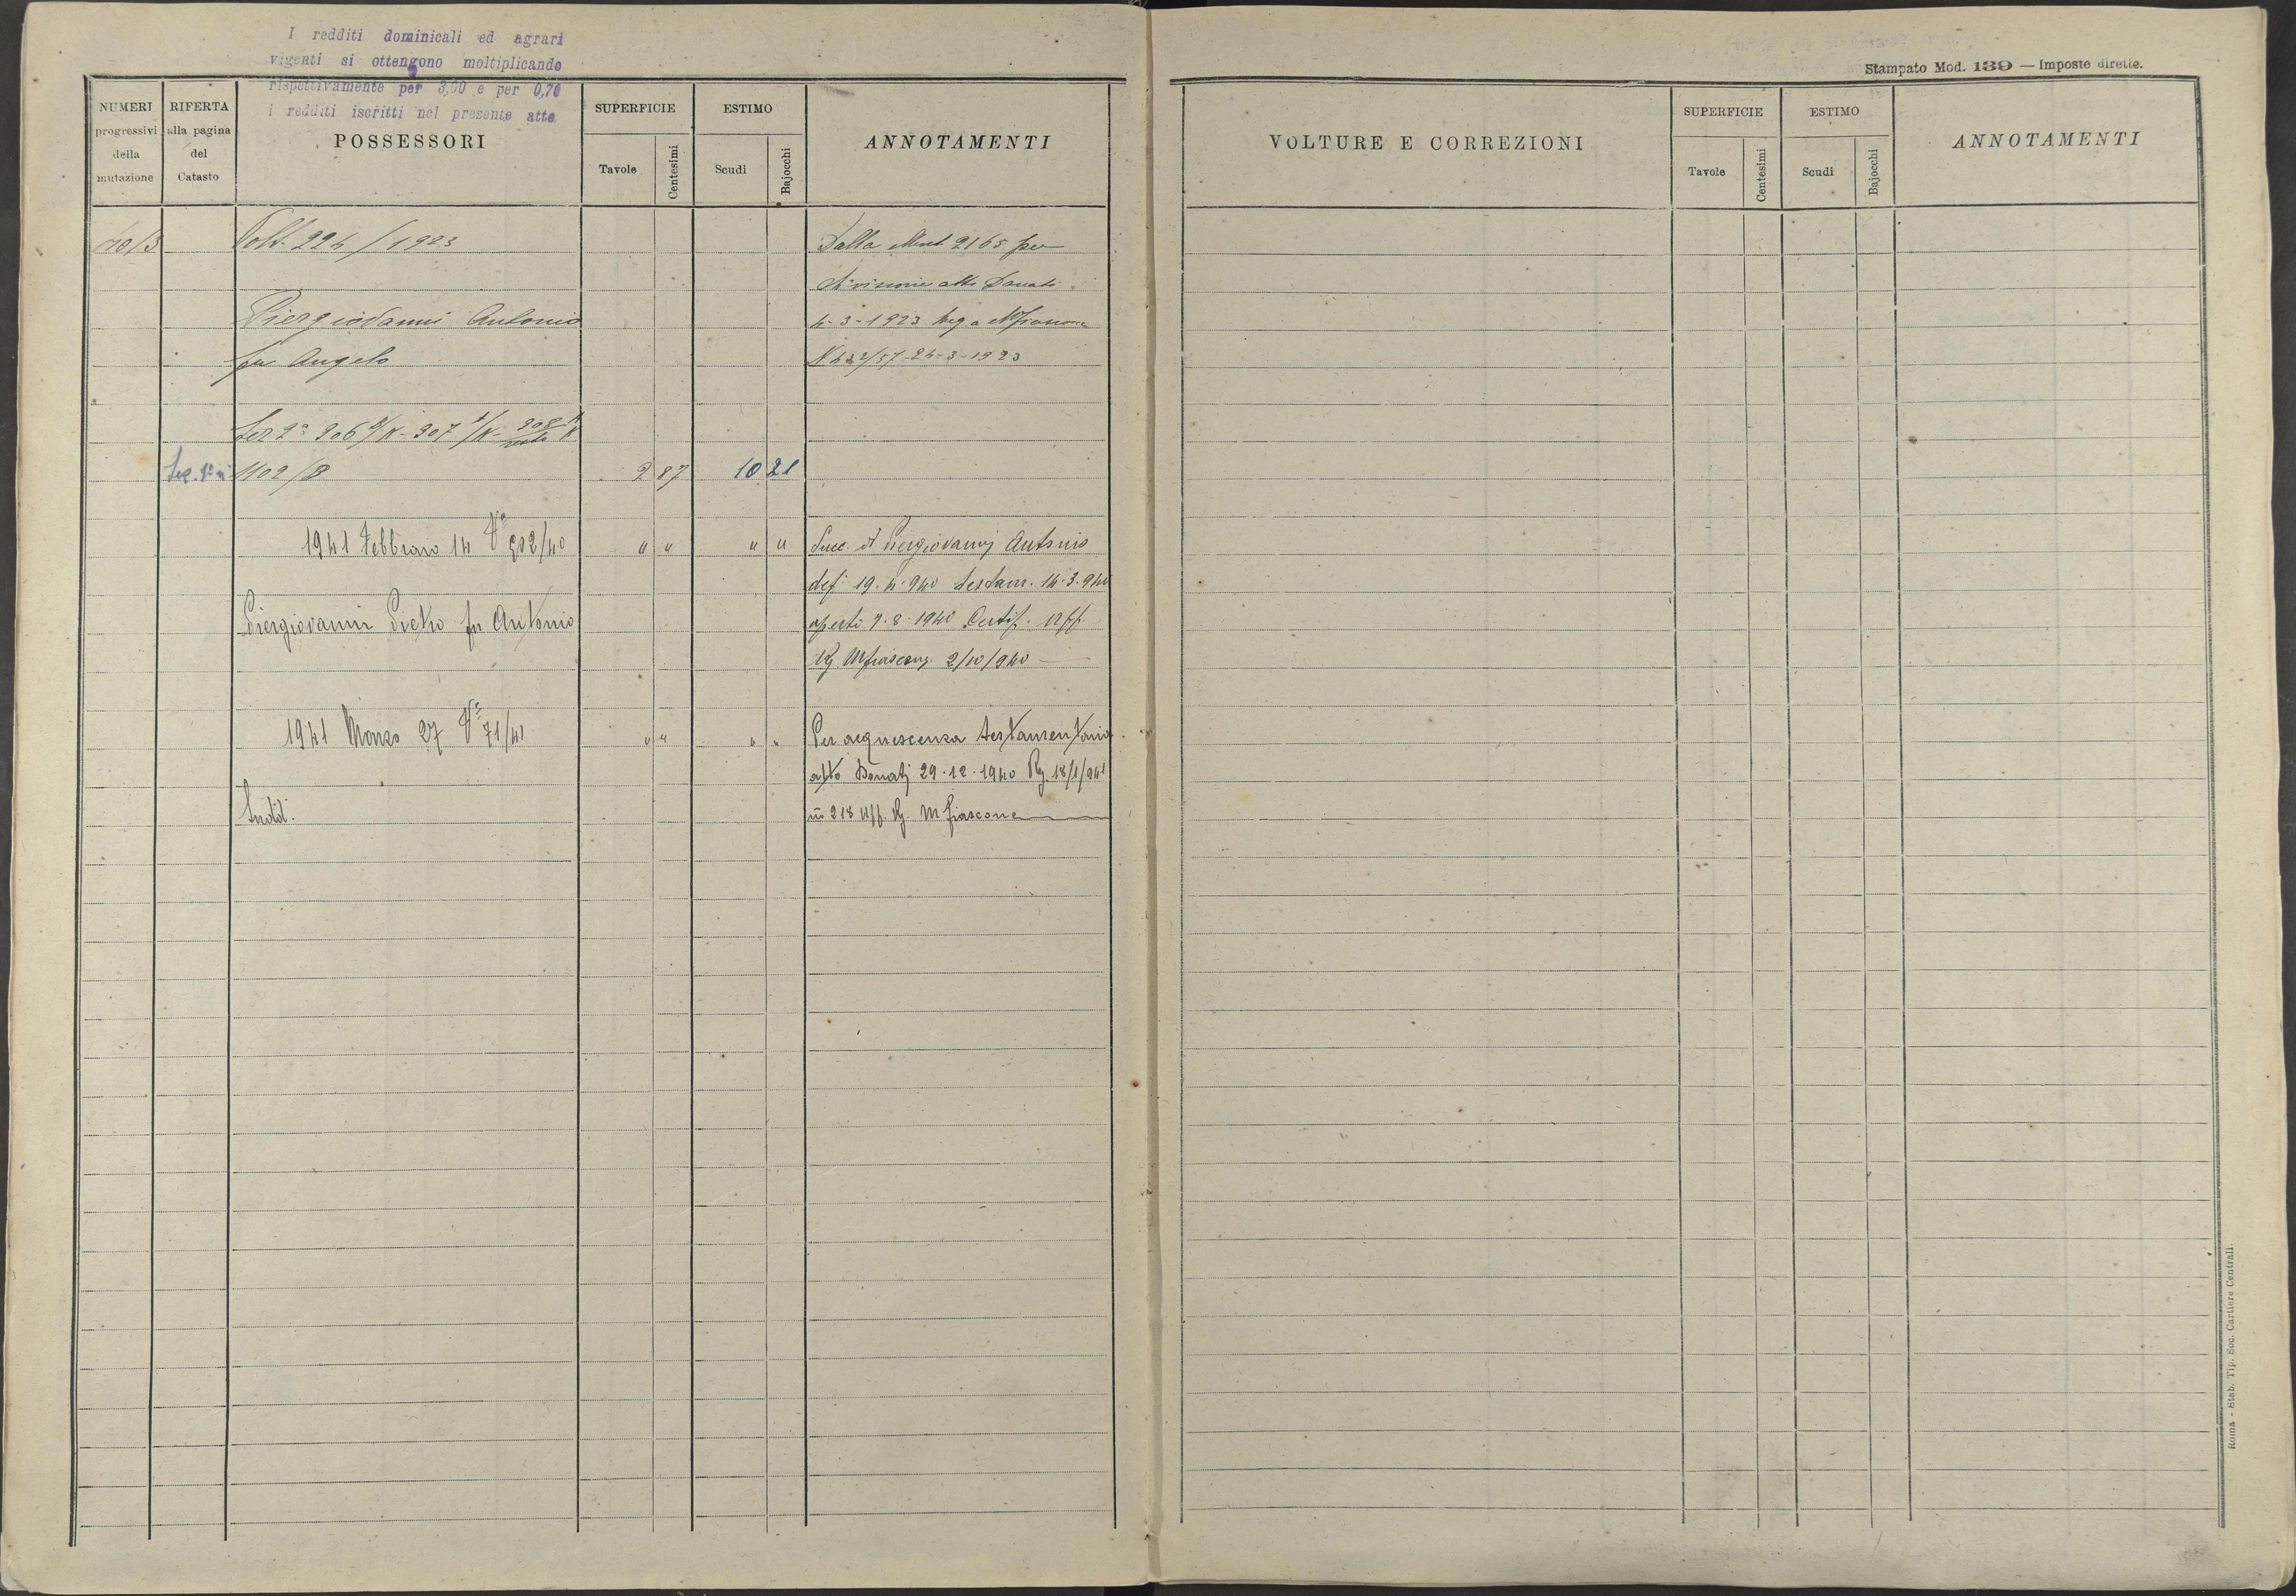 I redditi dominicali ed agrari
vigenti si ottengono moltiplicando
rispettivamente per 3,00 e per 0,70
i redditi iscritti nel presente atto
NUMERI
progressivi
della
mutazione
RIFERTA
alla pagina
del
Catasto
POSSESSORI
SUPERFICIE
Tavole
Centesimi
ESTIMO
Scudi
Bajocchi
ANNOTAMENTI
Volt. 224/1923
Dalla Mut 2165 per
divisione atto Donati
Piergiovanni Antonio
4-3-1923 Reg a Mfiascone
fu Angelo
24-3-1923
Sez 2ª 306 307 308
1102/8 2 87 10 21
1941 Febbraio 14 Vª 502/40 " " " " Succ. di Piergiovanni Antonio
def. 19.4.940 testam. 14.3.940
Piergiovanni Pietro fu Antonio aperto 7.8.1940 Certif. Uff
Rg. Mfiascone 2/10/940
1941 Marzo 27 Vª 71/41 " " " " Per acquiescenza testamentaria
atto Donati 29.12.1940 Rg. 18/1/941
Sudd. nº 218 Uff. Rg. Mfiascone
Stampato Mod. 139 — Imposte dirette.
VOLTURE E CORREZIONI
SUPERFICIE
Tavole
Centesimi
ESTIMO
Scudi
Bajocchi
ANNOTAMENTI
Roma - Stab. Tip. Soc. Cartiere Centrali.